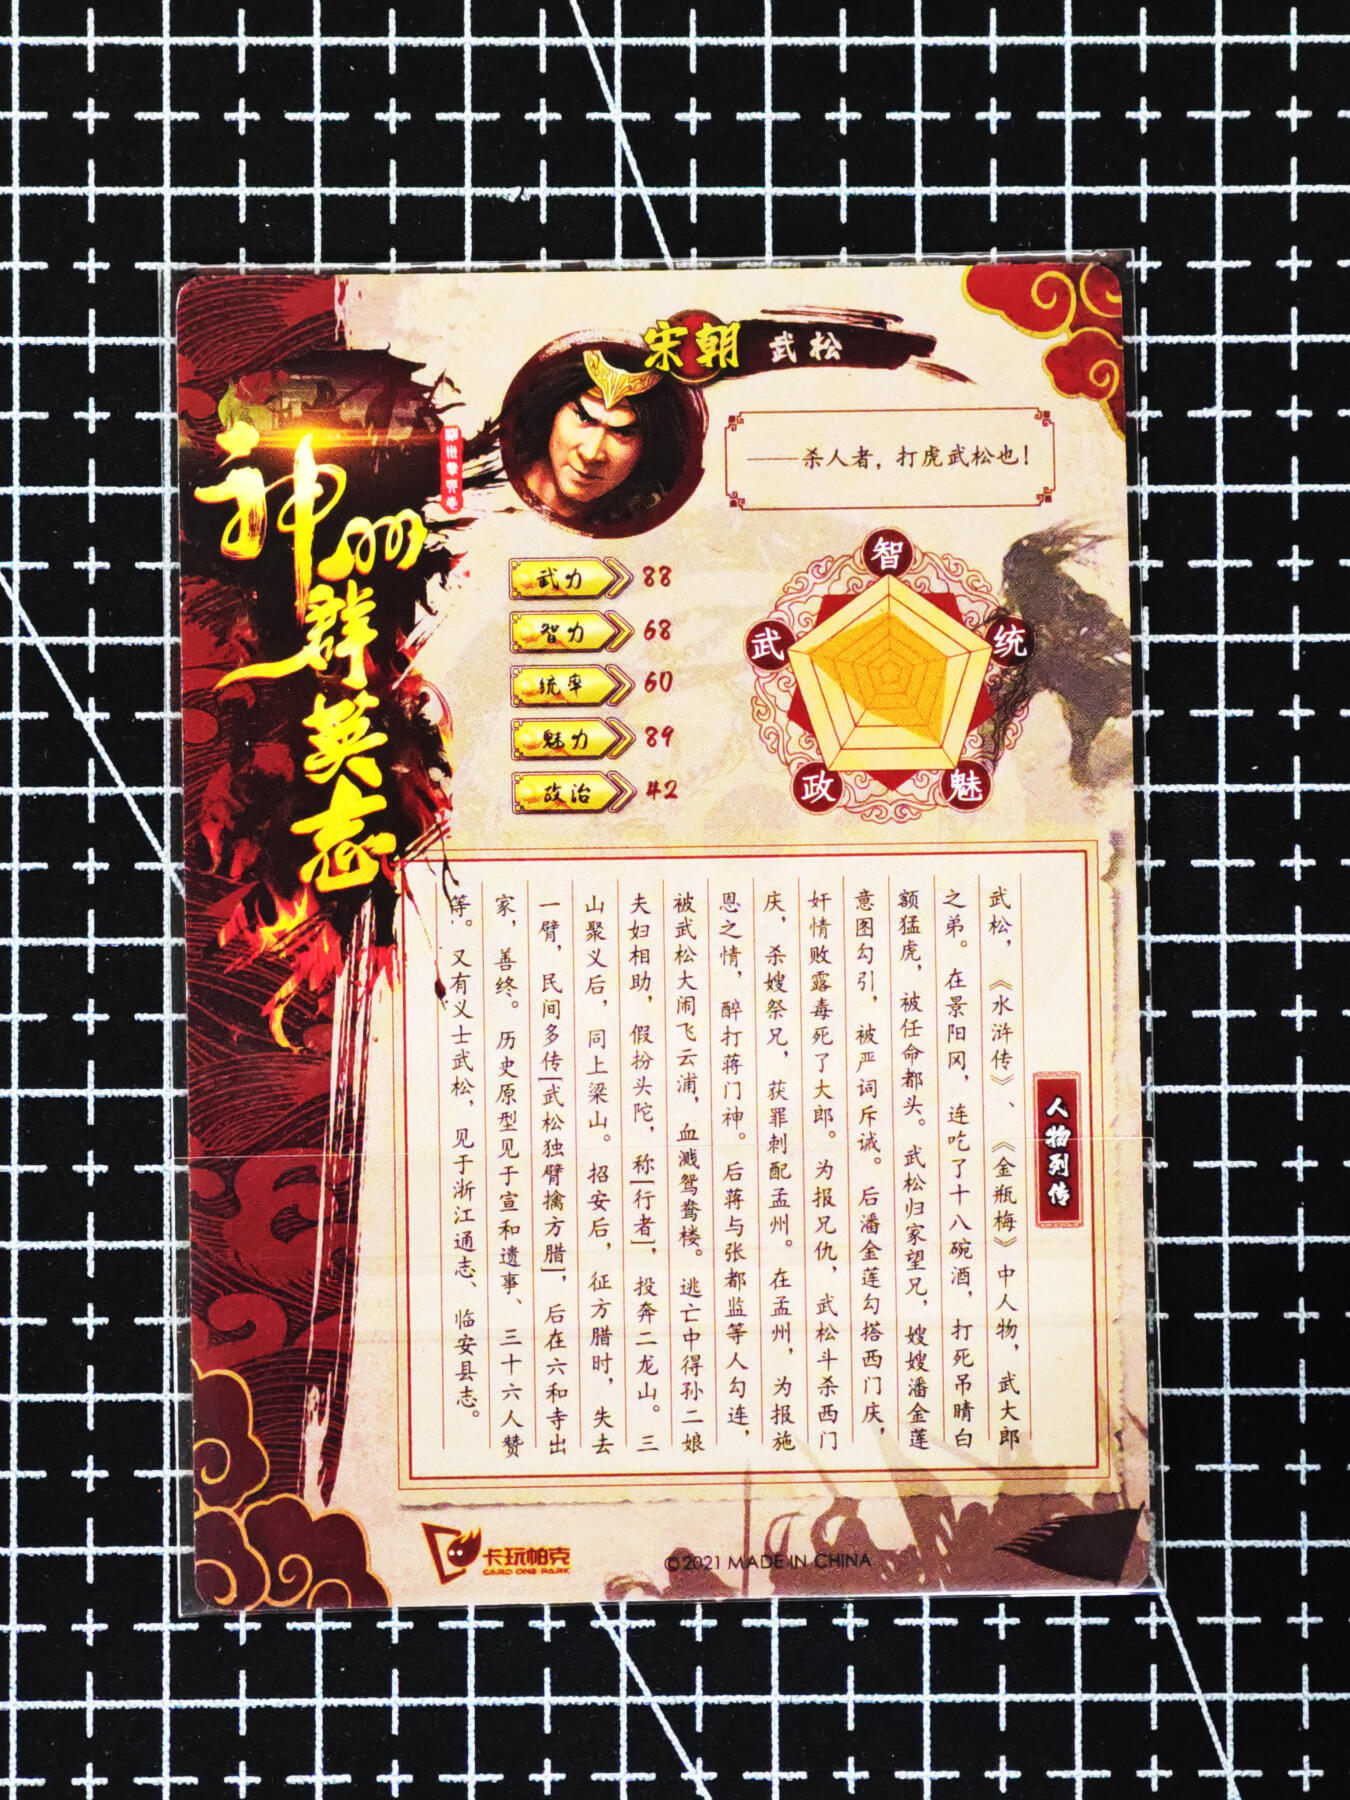 宋朝 武松
——杀人者，打虎武松也！
神州群英志
武力 88
智力 68
统率 60
魅力 89
政治 42
智
武
统
政
魅
人物列传
武松，《水浒传》、《金瓶梅》中人物，武大郎
之弟。在景阳冈，连吃了十八碗酒，打死吊睛白
额猛虎，被任命都头。武松归家望兄，嫂嫂潘金莲
意图勾引，被严词斥诫。后潘金莲勾搭西门庆，
奸情败露毒死了大郎。为报兄仇，武松斗杀西门
庆，杀嫂祭兄，获罪刺配孟州。在孟州，为报施
恩之情，醉打蒋门神。后蒋与张都监等人勾连，
被武松大闹飞云浦，血溅鸳鸯楼。逃亡中得孙二娘
夫妇相助，假扮头陀，称[行者]，投奔二龙山。三
山聚义后，同上梁山。招安后，征方腊时，失去
一臂，民间多传[武松独臂擒方腊]，后在六和寺出
家，善终。历史原型见于宣和遗事、三十六人赞
等。又有义士武松，见于浙江通志、临安县志。
卡玩帕克
CARD ONE PARK
©2021 MADE IN CHINA